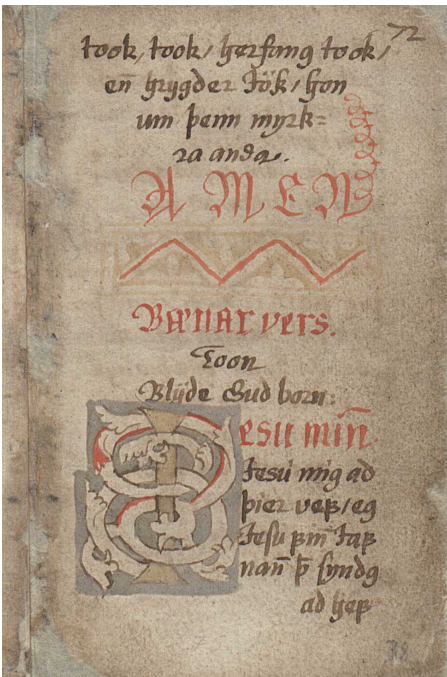 72
took, took / herfang took /
en̄ hrygder Jók / hon
um þenn myrk=
ra anda.
AMEN
Bænar vers.
Toon
Blijde Gud born:
Jesu min̄
Jesu mig ad
þier veß / eg
Jesu þin̄ taß
nan̄ syndg
ad hef